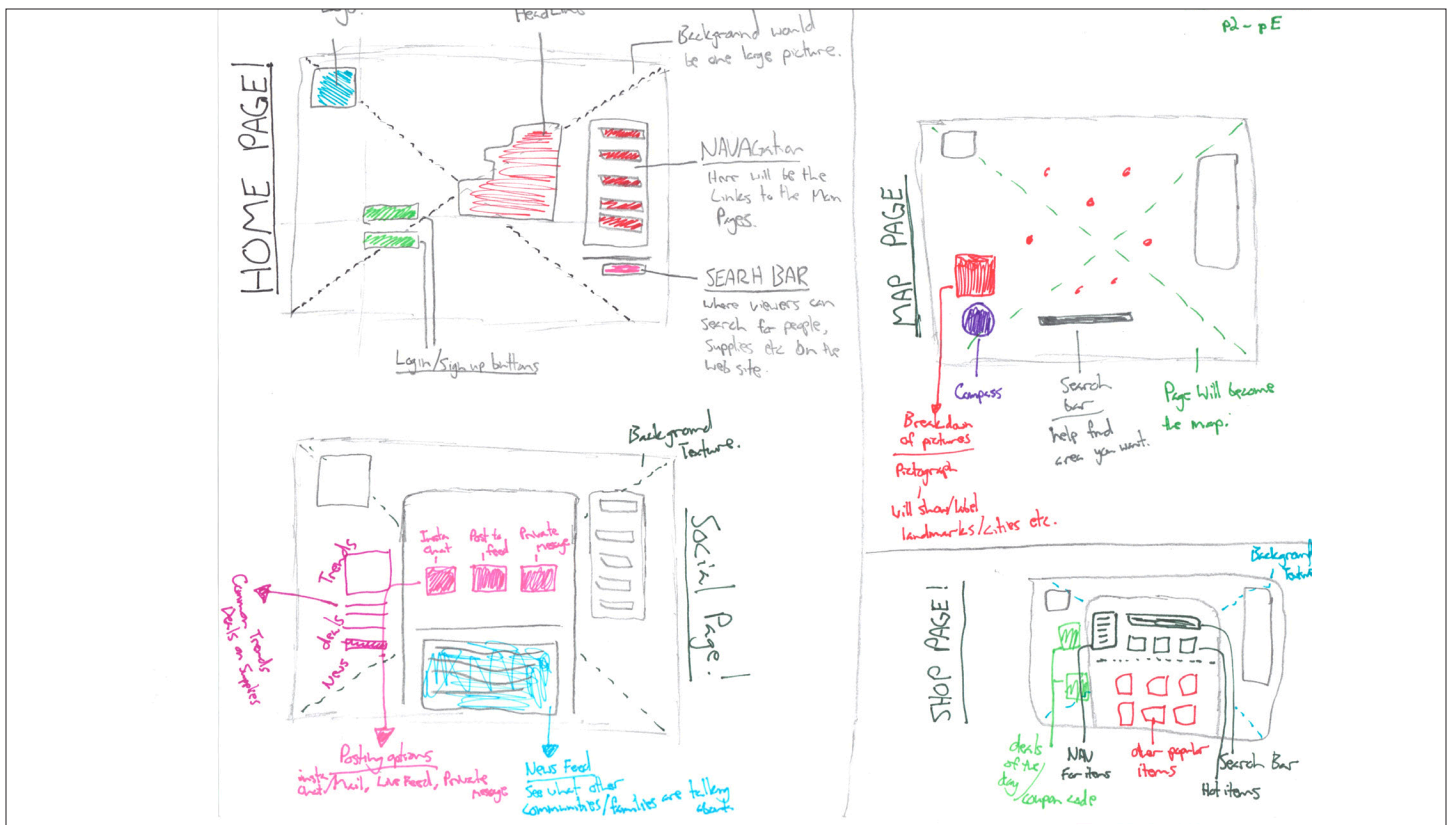 Logo.
HeadLine
Background would
be one large picture.
HOME PAGE!
NAVAGation
Here will be the
Links to the Main
Pages.
SEARH BAR
where viewers can
Search for people,
Supplies etc on the
web site.
Login/Sign up buttons
p2 - pE
MAP PAGE
Compass
Search
bar
help find
area you want.
Page Will become
the map.
Breakdown
of pictures
Pictograph
will show/label
landmarks/cities etc.
Background
Texture.
Social Page!
Insta
chat
Post to
feed
Private
message
Trends
deals
News
Common Trends
Deals on Supplies
Posting options
insta chat/Mail, Live Feed, Private
message
News Feed
See what other
communities/families are talking
about.
SHOP PAGE!
Background
deals
of the
day/
coupon code
NAV
For items
other popular
items
Search Bar
Hot items